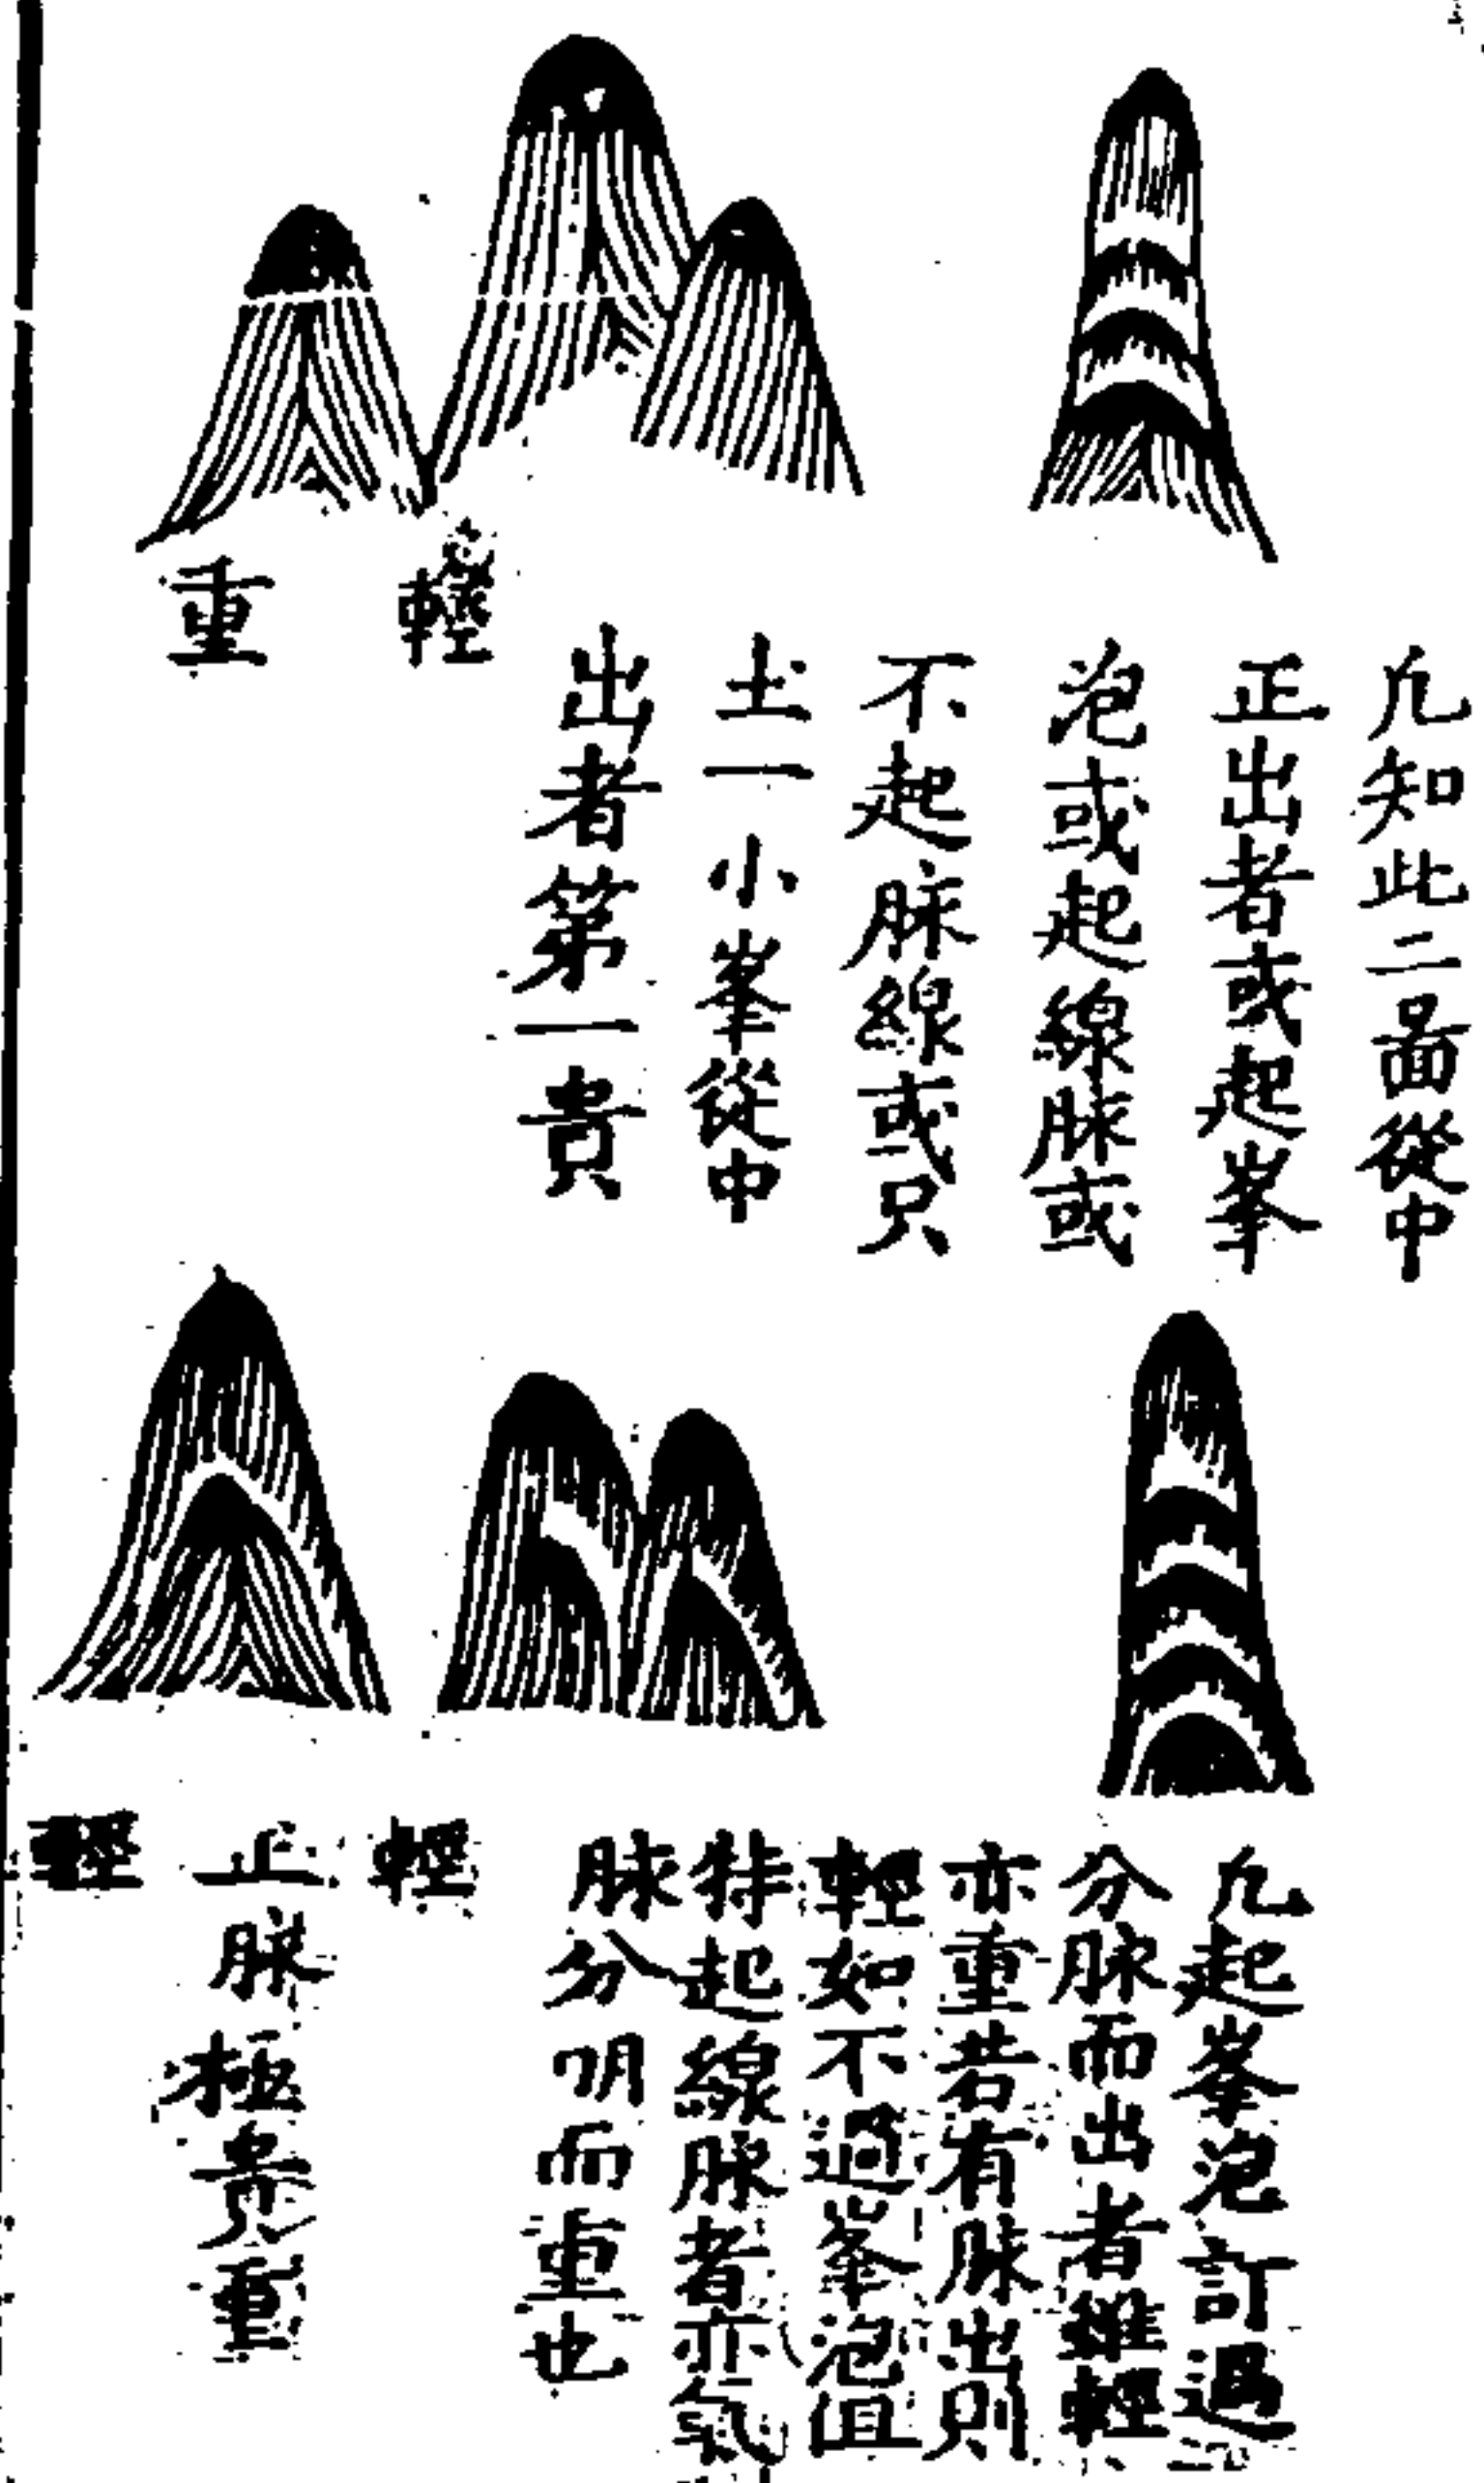 凢知此二啚從中
正出者或起峯
泡或起線脉或
不起脉線或只
土一小峯從中
出者第一貴
輕
重
凢起峯泡訂過
分脉而出者雖輕
亦重若有脉出則
輕如不過峯泡直
待起線脉者亦氣
脉分明而重也
輕
正脉極貴重
輕